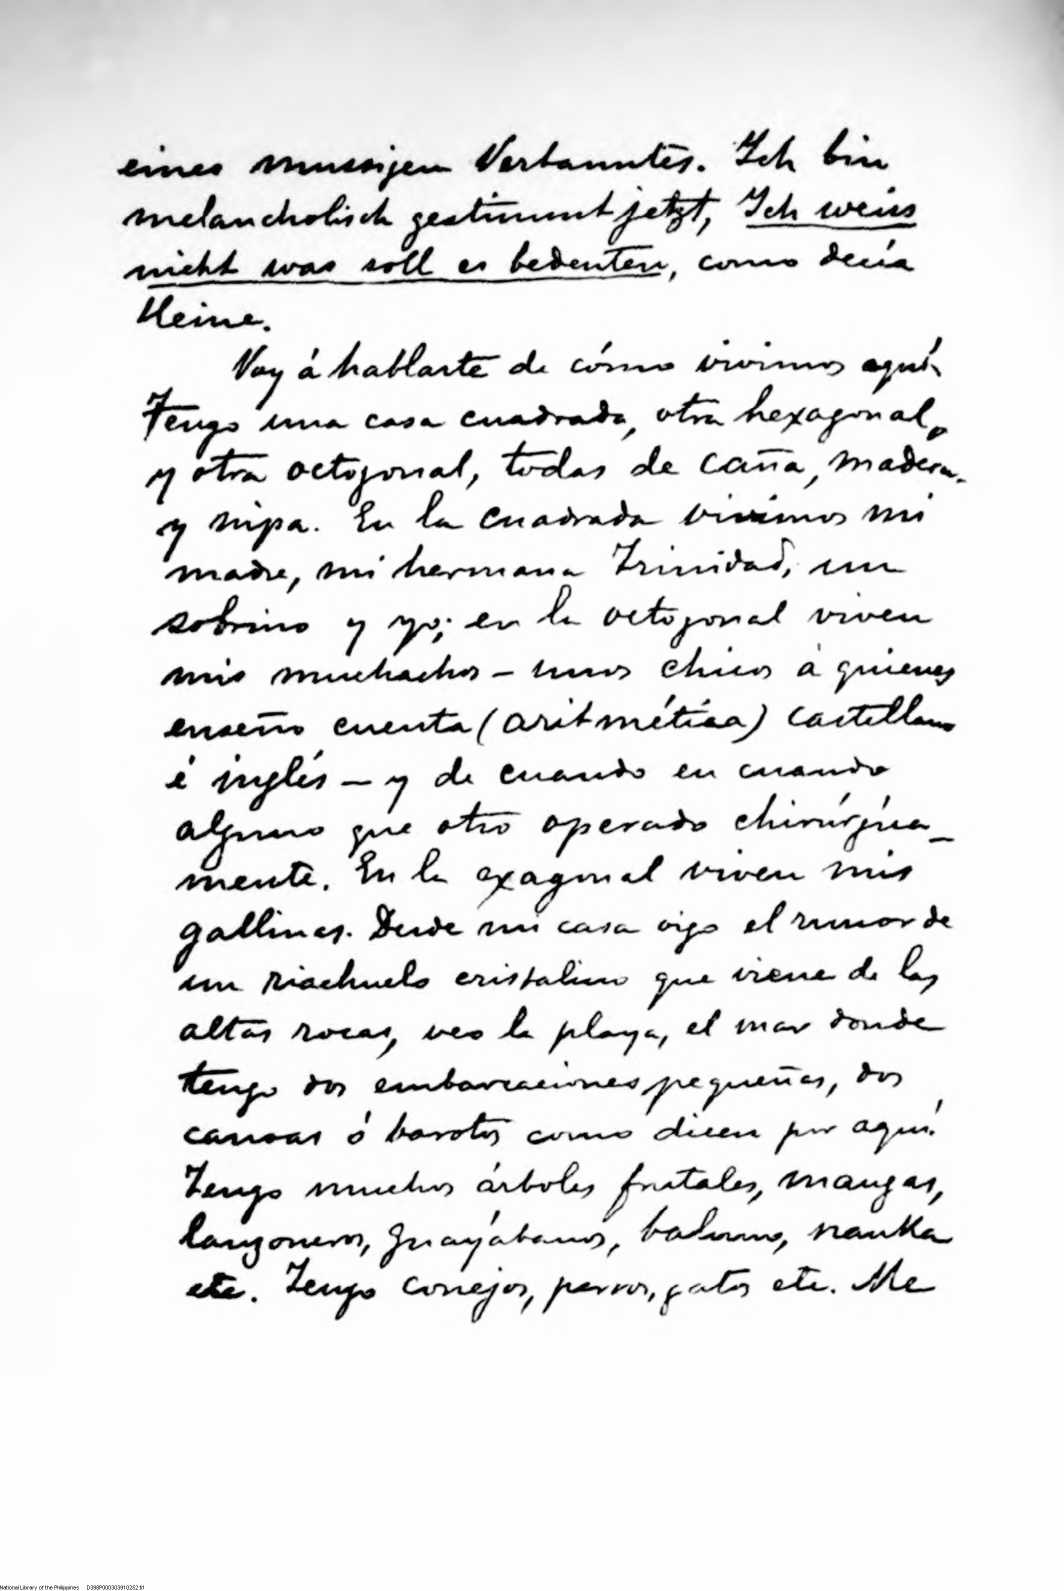 eines mussigen Verbanntes. Ich bin
melancholisch gestimmt jetzt, Ich weiss
nicht was soll es bedeuten, como decía
Heine.
Voy á hablarte de cómo vivimos aquí.
Tengo una casa cuadrada, otra hexagonal,
y otra octogonal, todas de caña, madera
y nipa. En la cuadrada vivimos mi
madre, mi hermana Trinidad, un
sobrino y yo; en la octogonal viven
mis muchachos — unos chicos á quienes
enseño cuenta (aritmética) castellano
é inglés — y de cuando en cuando
alguno que otro operado chirúrgica-
mente. En la exagonal viven mis
gallinas. Desde mi casa oigo el rumor de
un riachuelo cristalino que viene de las
altas rocas, veo la playa, el mar donde
tengo dos embarcaciones pequeñas, dos
canoas ó barotos como dicen por aquí.
Tengo muchos árboles frutales, mangas,
lanzoneros, guayabanos, baluno, nanka
etc. Tengo conejos, perros, gatos etc. Me
National Library of the Philippines